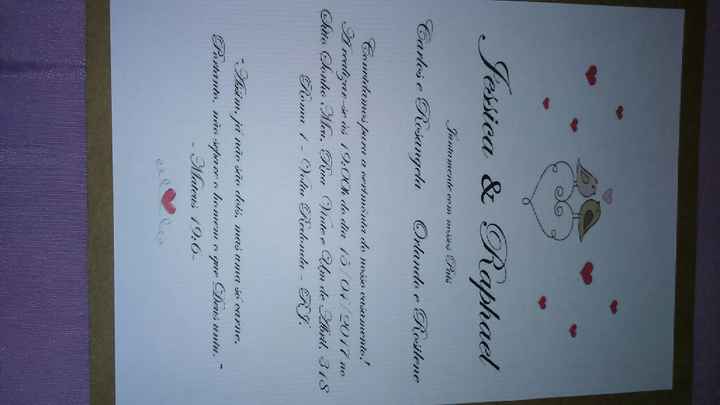 Jéssica & Raphael
Juntamente com nossos Pais
Carlos e Rosangela Orlando e Rosilene
Convidamos para a cerimônia do nosso casamento!
A realizar-se às 19:00h do dia 15/04/2017 no
Sítio Sonho Meu, Rua Vinte e Um de Abril, 318
Roma 1 - Volta Redonda - RJ.
"Assim já não são dois, mas uma só carne.
Portanto, não separe o homem o que Deus uniu."
- Mateus 19,6-